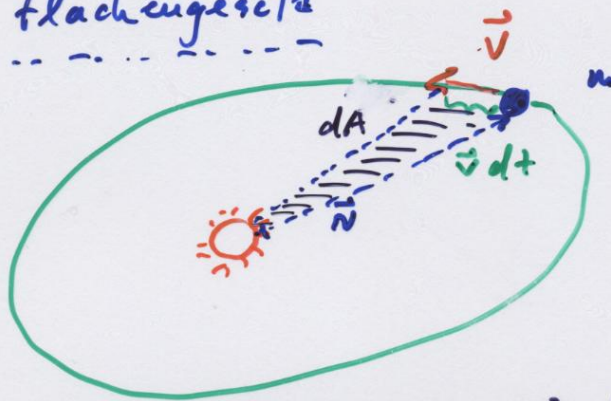 Flächengesetz
v⃗
dA
v⃗ dt
r⃗